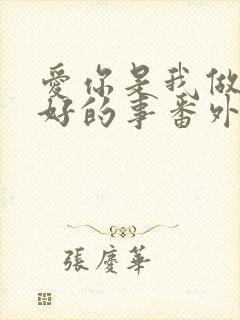 愛你是我做
好的事番外
張慶華